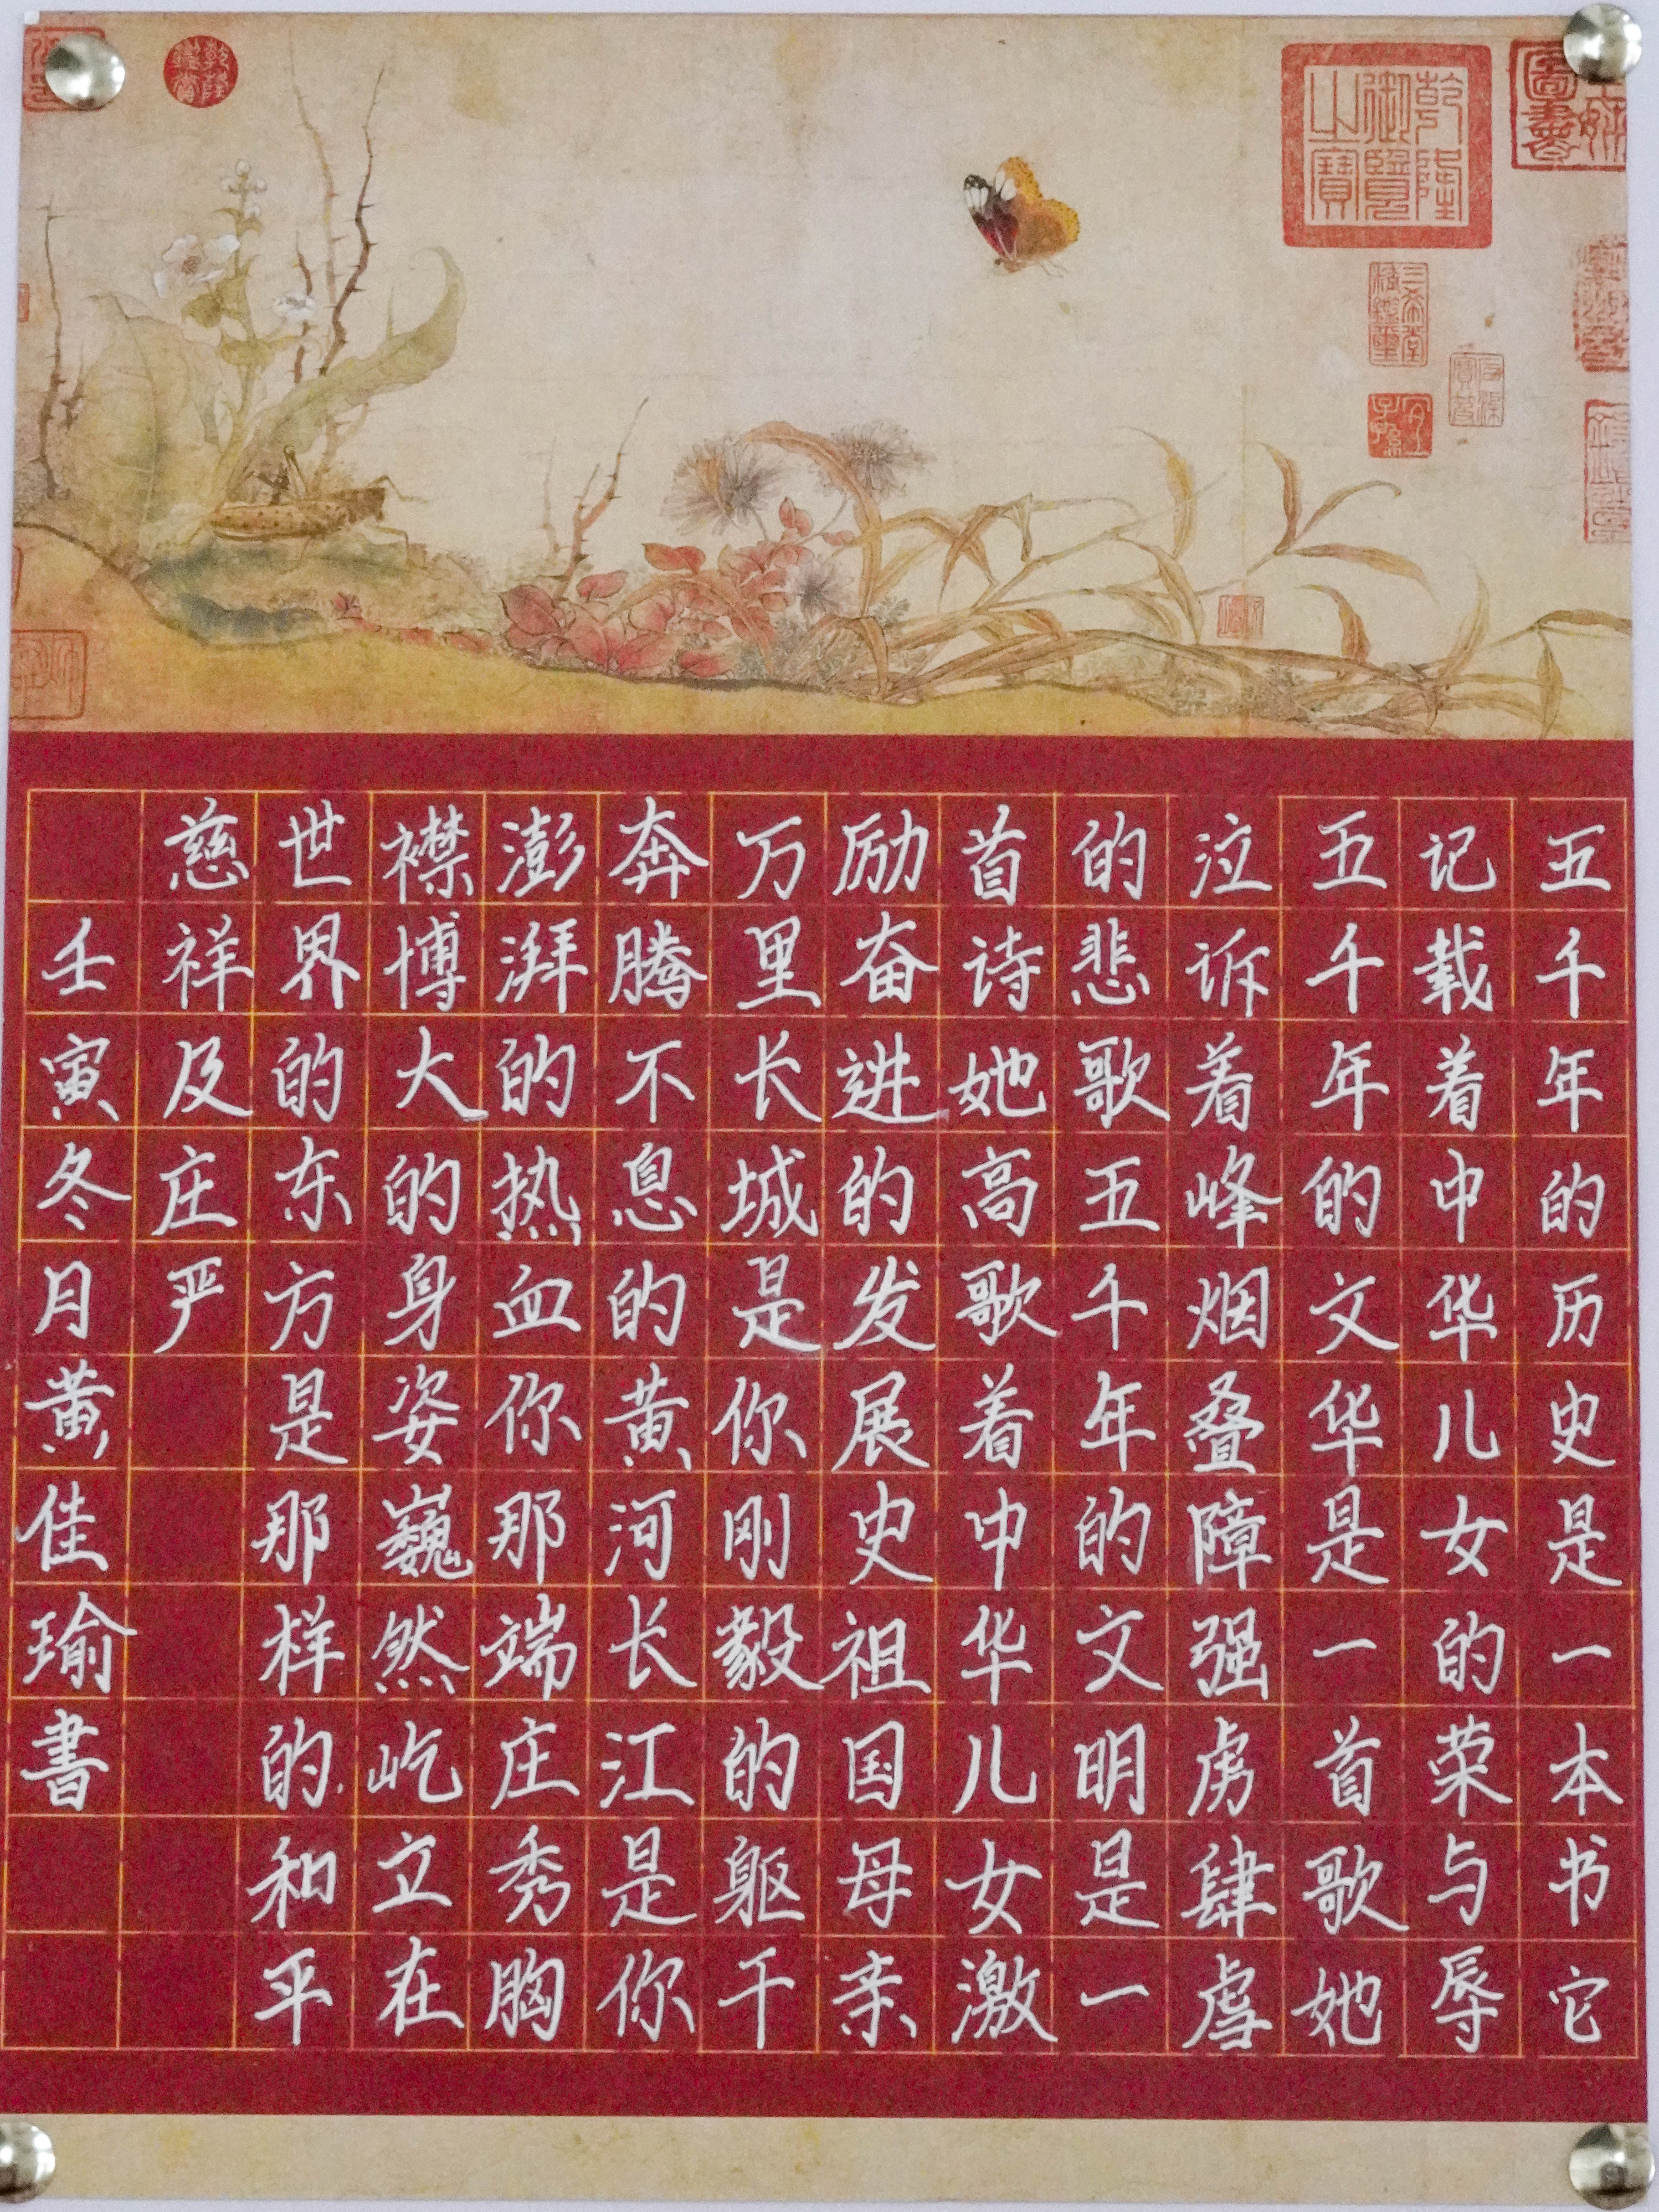 乾隆御覽之寶
三希堂精鑑璽
宜子孫
乾隆鑑賞
五千年的历史是一本书它
记载着中华儿女的荣与辱
五千年的文华是一首歌她
泣诉着峰烟叠障强虏肆虐
的悲歌五千年的文明是一
首诗她高歌着中华儿女激
励奋进的发展史祖国母亲
万里长城是你刚毅的躯干
奔腾不息的黄河长江是你
澎湃的热血你那端庄秀胸
襟博大的身姿巍然屹立在
世界的东方是那样的和平
慈祥及庄严
壬寅冬月黄佳瑜書